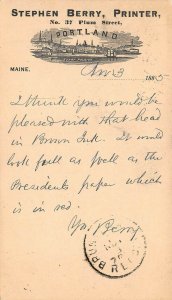 STEPHEN BERRY, PRINTER,
No. 37 Plum Street,
PORTLAND
MAINE.
3 1885
I think you would be
pleased with that head
in Brown Ink. It would
look full as well as the
Presidents paper which
is in red.
Yrs Berry